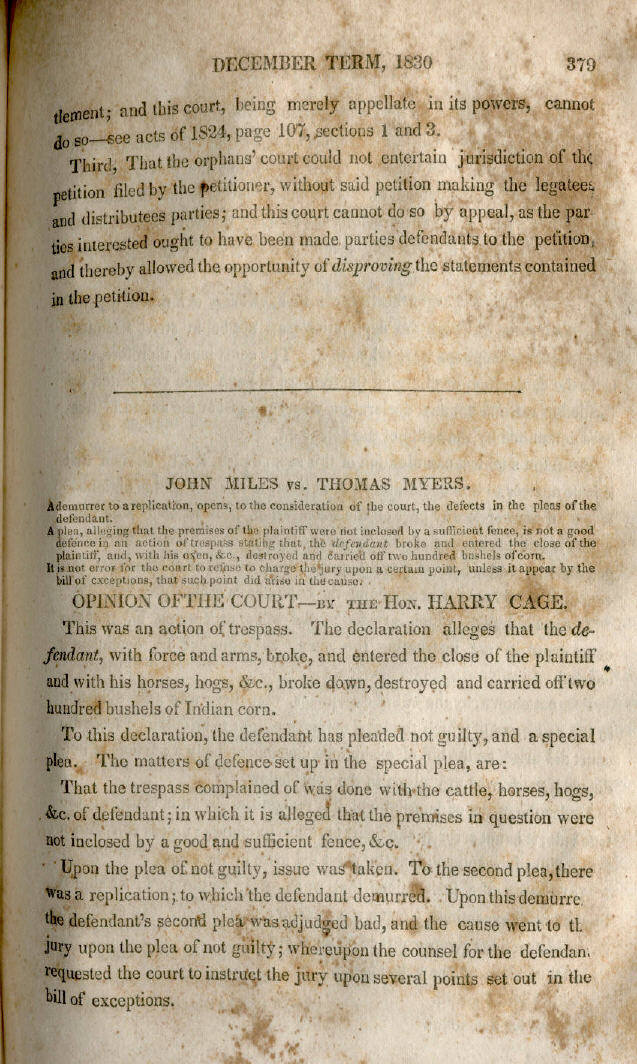 DECEMBER TERM, 1830 379
tlement; and this court, being merely appellate in its powers, cannot
do so—see acts of 1824, page 107, sections 1 and 3.
Third, That the orphans' court could not entertain jurisdiction of the
petition filed by the petitioner, without said petition making the legatees
and distributees parties; and this court cannot do so by appeal, as the par
ties interested ought to have been made parties defendants to the petition,
and thereby allowed the opportunity of disproving the statements contained
in the petition.
JOHN MILES vs. THOMAS MYERS.
A demurrer to a replication, opens, to the consideration of the court, the defects in the pleas of the
defendant.
A plea, alleging that the premises of the plaintiff were not inclosed by a sufficient fence, is not a good
defence in an action of trespass stating that, the defendant broke and entered the close of the
plaintiff, and, with his oxen, &c., destroyed and carried off two hundred bushels of corn.
It is not error for the court to refuse to charge the jury upon a certain point, unless it appear by the
bill of exceptions, that such point did arise in the cause.
OPINION OF THE COURT—BY THE HON. HARRY CAGE.
This was an action of trespass. The declaration alleges that the de-
fendant, with force and arms, broke, and entered the close of the plaintiff
and with his horses, hogs, &c., broke down, destroyed and carried off two
hundred bushels of Indian corn.
To this declaration, the defendant has pleaded not guilty, and a special
plea. The matters of defence set up in the special plea, are:
That the trespass complained of was done with the cattle, horses, hogs,
&c. of defendant; in which it is alleged that the premises in question were
not inclosed by a good and sufficient fence, &c.
Upon the plea of not guilty, issue was taken. To the second plea, there
was a replication; to which the defendant demurred. Upon this demurre
the defendant's second plea was adjudged bad, and the cause went to th
jury upon the plea of not guilty; whereupon the counsel for the defendan
requested the court to instruct the jury upon several points set out in the
bill of exceptions.